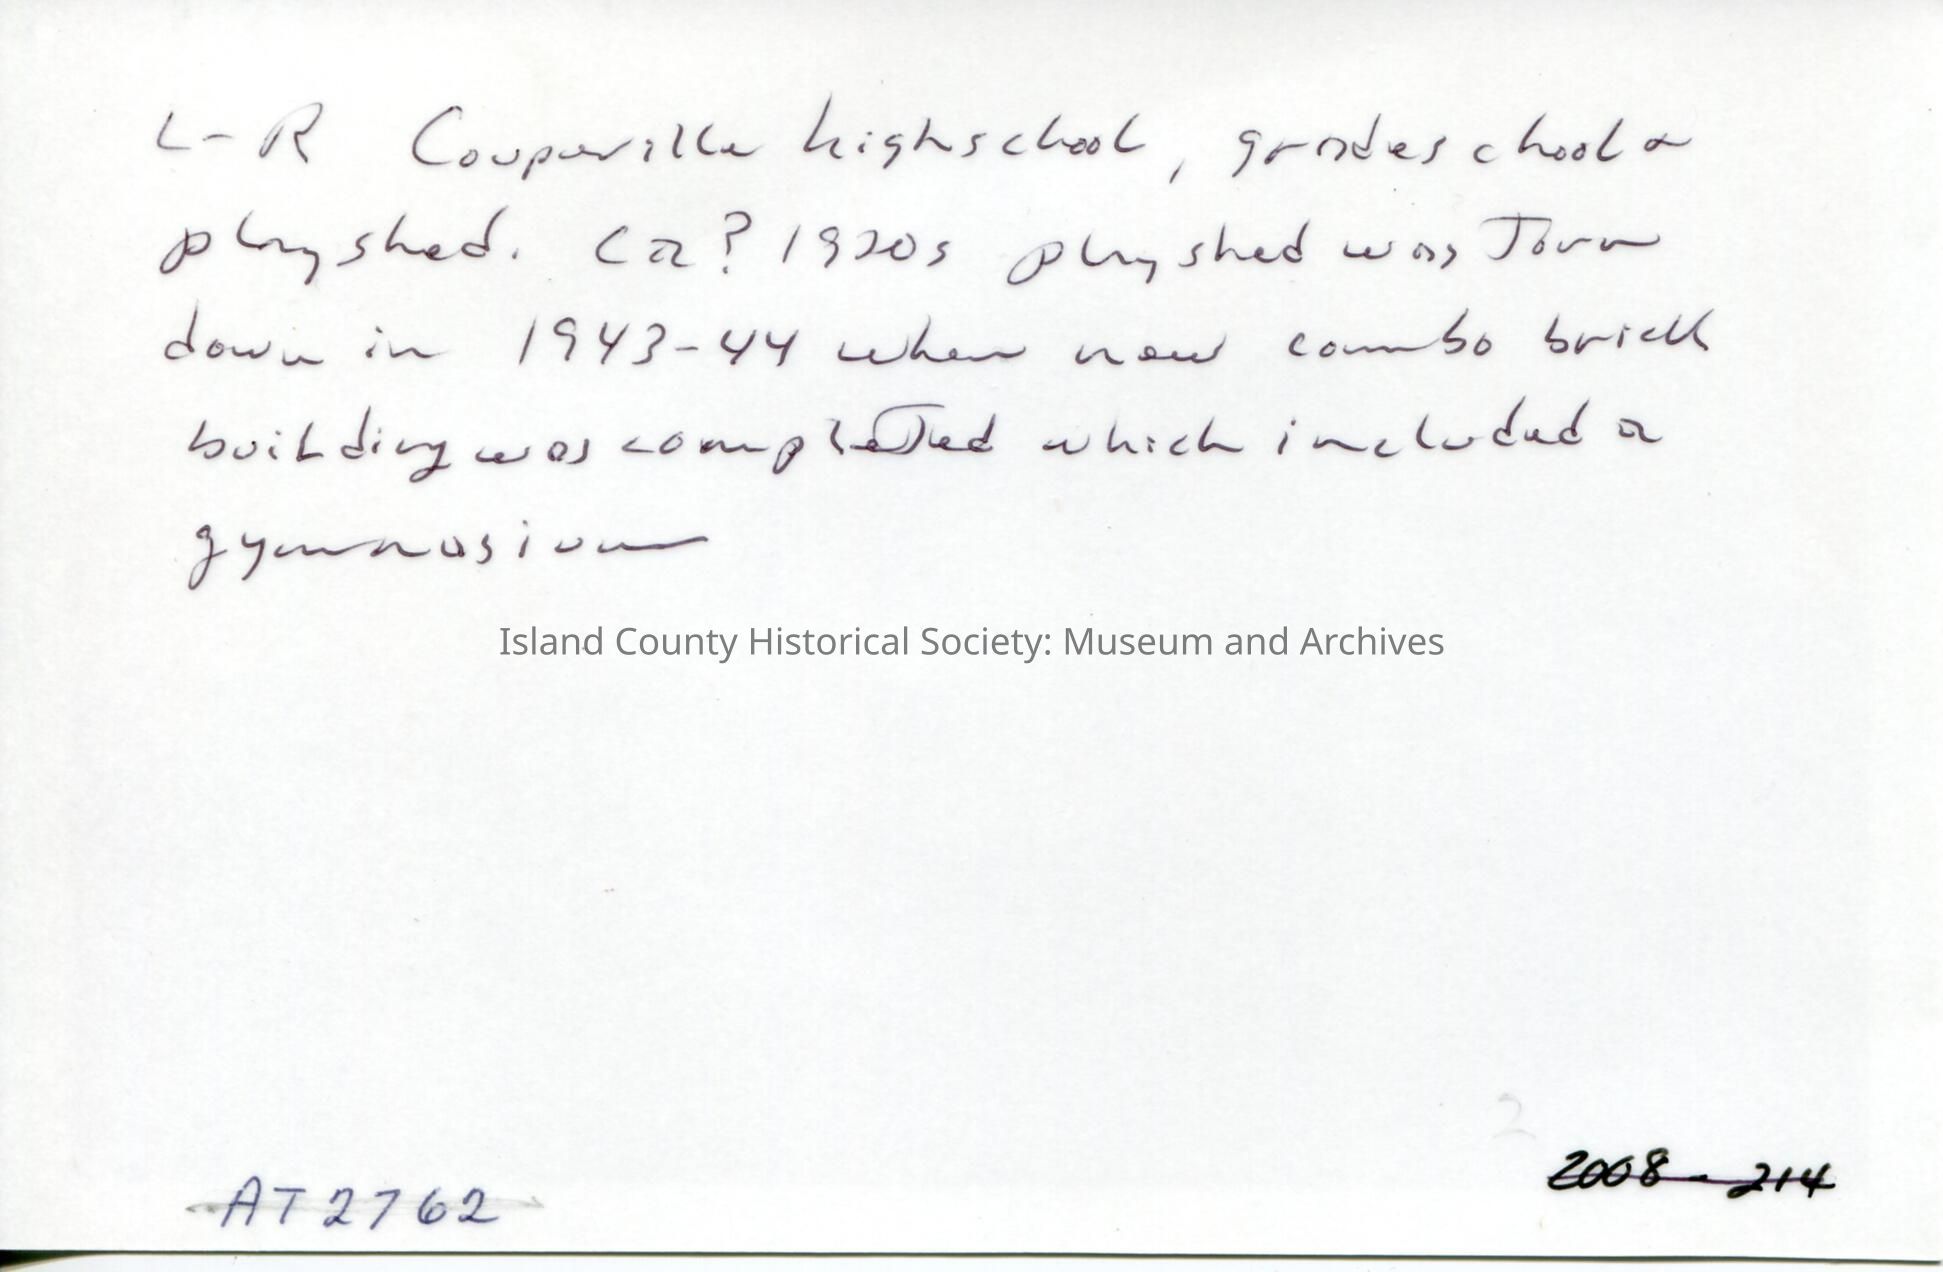 L-R Coupeville highschool, gradeschool &
playshed. Ca? 1920s playshed was Torn
down in 1943-44 when new combo brick
building was compleTed which included a
gymnasium
Island County Historical Society: Museum and Archives
2
2008-214
AT2762